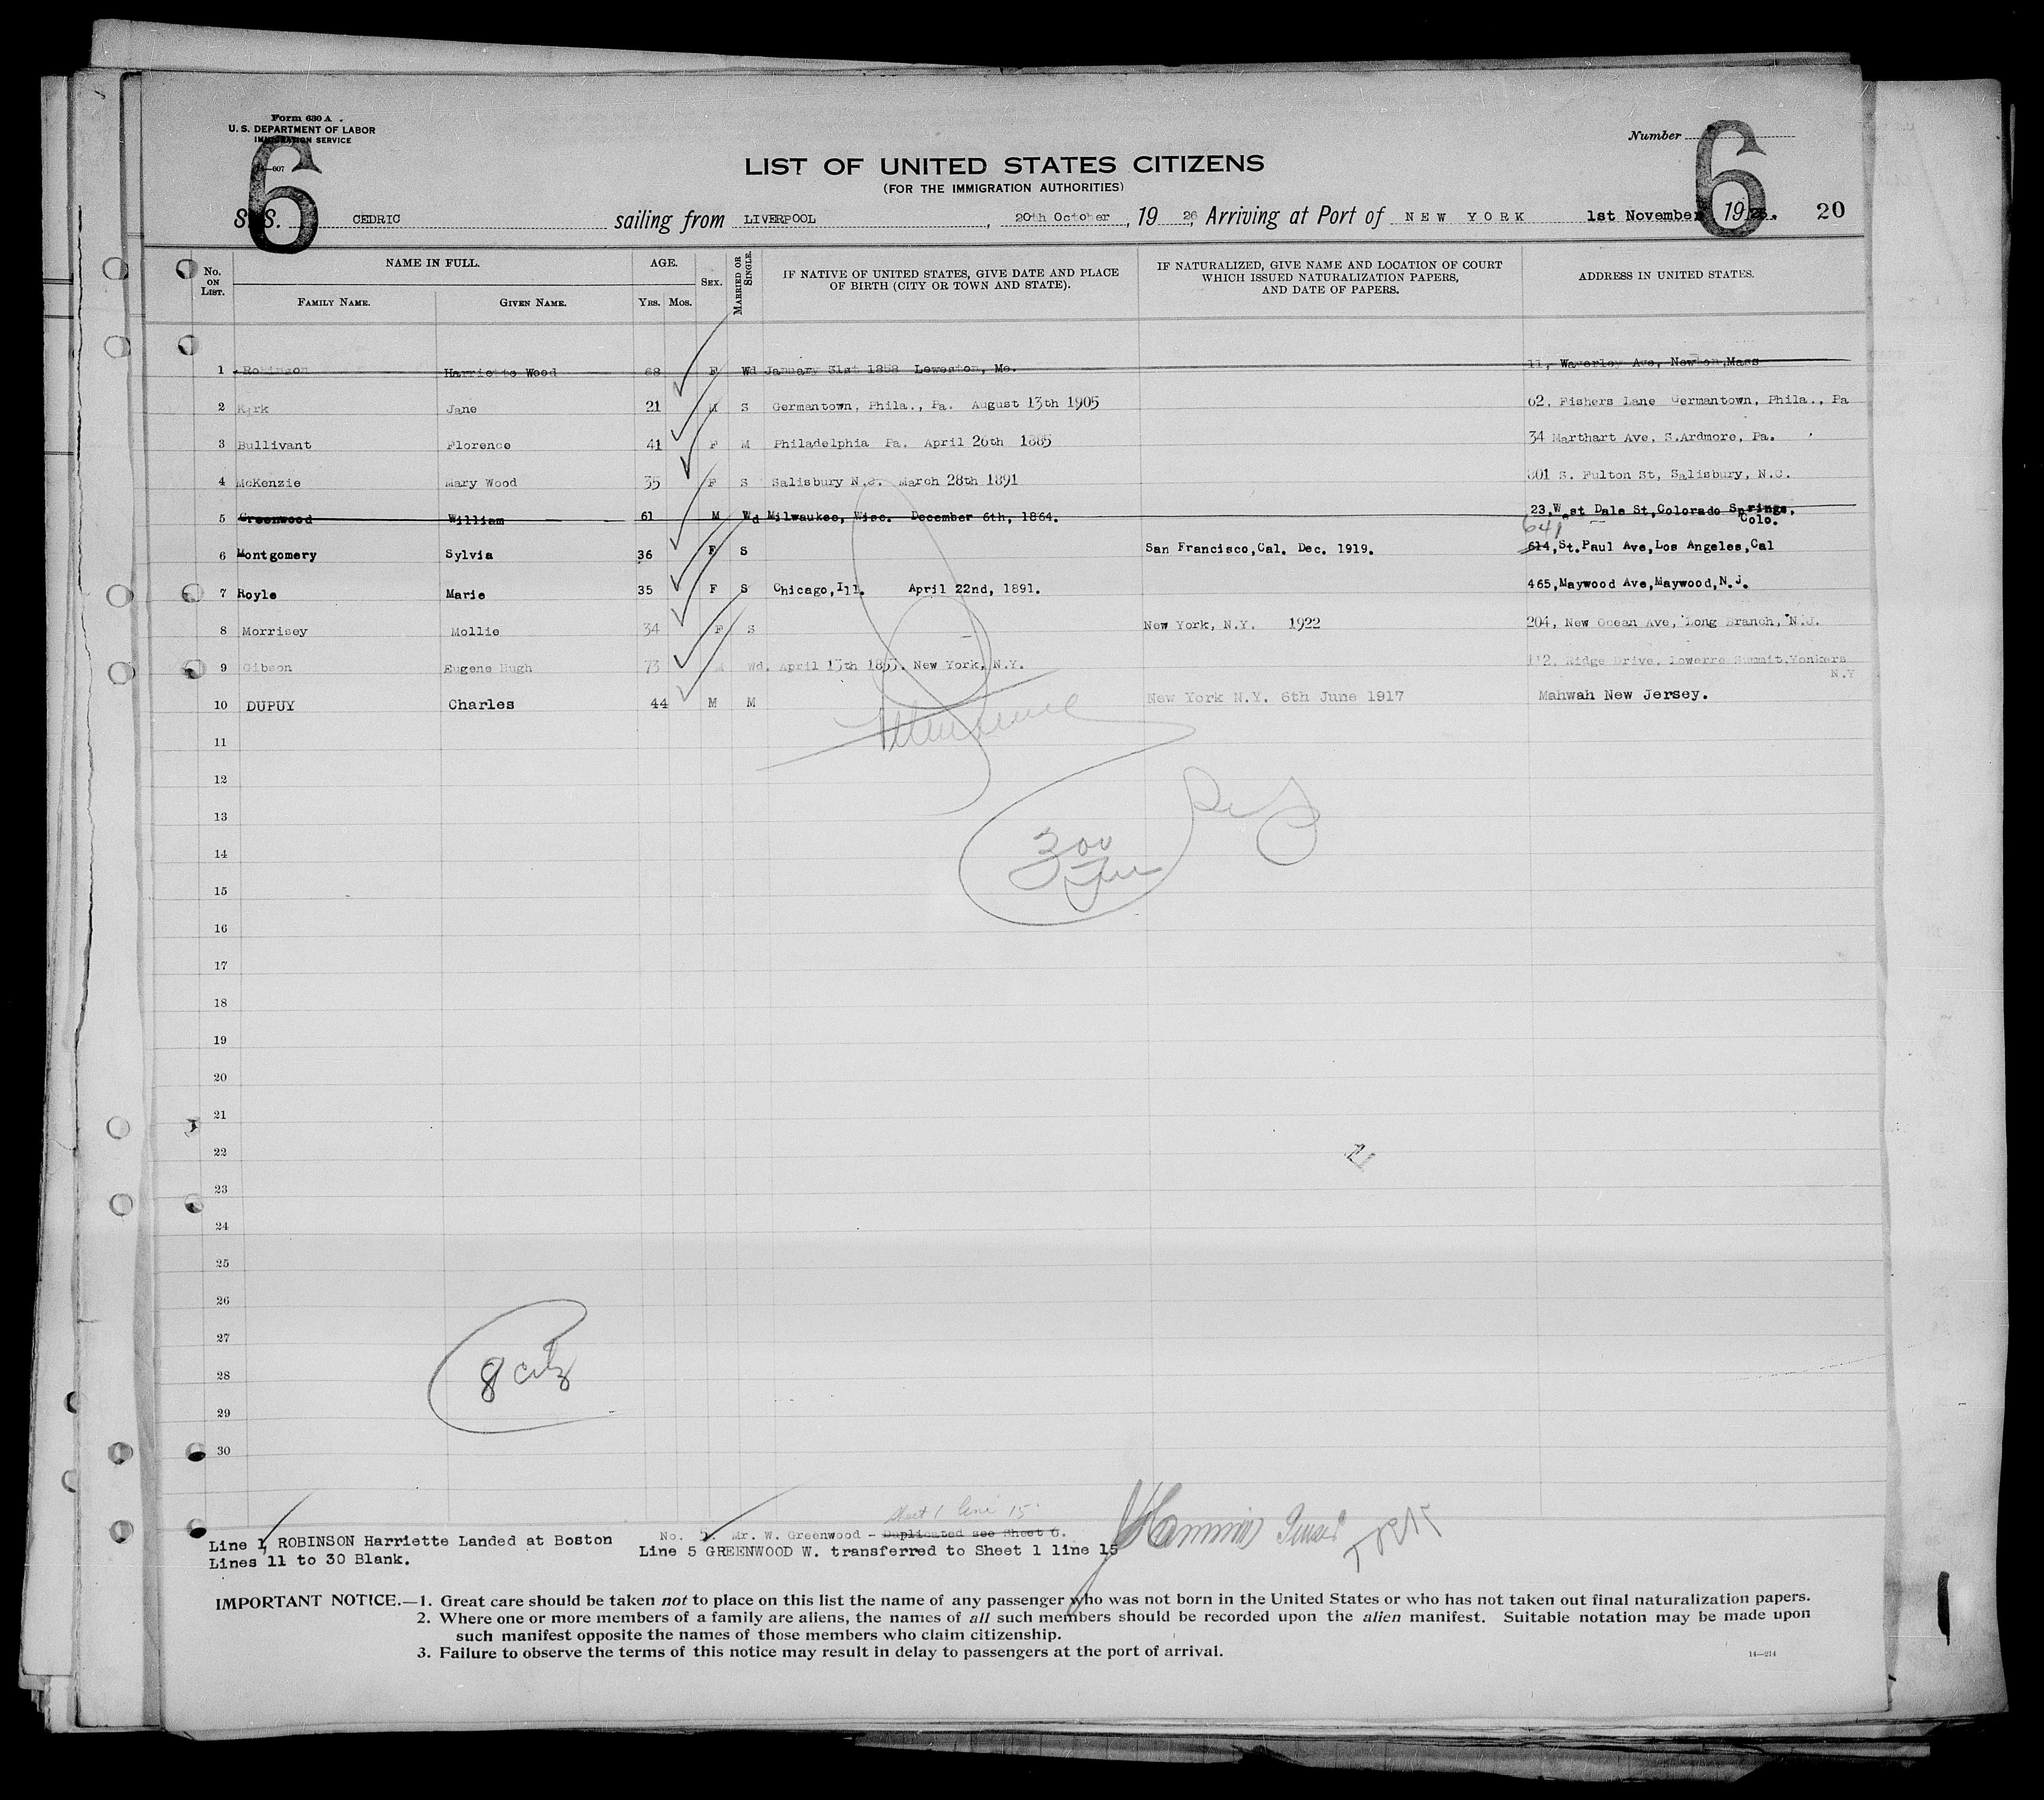 Form 630 A
U. S. DEPARTMENT OF LABOR
IMMIGRATION SERVICE
6
Number
6
LIST OF UNITED STATES CITIZENS
(FOR THE IMMIGRATION AUTHORITIES)
S.S. CEDRIC sailing from LIVERPOOL, 20th October, 1926, Arriving at Port of NEW YORK 1st November 1926. 20
No. ON LIST.
NAME IN FULL.
FAMILY NAME. GIVEN NAME.
AGE.
YRS. MOS.
SEX.
MARRIED OR SINGLE.
IF NATIVE OF UNITED STATES, GIVE DATE AND PLACE OF BIRTH (CITY OR TOWN AND STATE).
IF NATURALIZED, GIVE NAME AND LOCATION OF COURT WHICH ISSUED NATURALIZATION PAPERS, AND DATE OF PAPERS.
ADDRESS IN UNITED STATES.
1 Robinson Harriette Wood 68 F Wd January 31st 1858 Leweston, Me. 11, Waverley Ave, Newton,Mass
2 Kirk Jane 21 S Germantown, Phila., Pa. August 13th 1905 62, Fishers Lane Germantown, Phila., Pa
3 Bullivant Florence 41 F M Philadelphia Pa. April 26th 1885 34 Marthart Ave, S.Ardmore, Pa.
4 McKenzie Mary Wood 35 F S Salisbury N.C. March 28th 1891 801 S. Fulton St, Salisbury, N.C.
5 Greenwood William 61 M Wd Milwaukee, Wisc. December 6th, 1864. 23,West Dale St,Colorado Springs, Colo.
641
6 Montgomery Sylvia 36 F S San Francisco,Cal. Dec. 1919. 614,St.Paul Ave,Los Angeles,Cal
7 Royle Marie 35 F S Chicago,Ill. April 22nd, 1891. 465,Maywood Ave,Maywood,N.J.
8 Morrisey Mollie 34 F S New York, N.Y. 1922 204, New Ocean Ave, Long Branch, N.J.
9 Gibson Eugene Hugh 73 M Wd. April 13th 1853. New York, N.Y. 112, Ridge Drive, Lowerre Summit,Yonkers N.Y
10 DUPUY Charles 44 M M New York N.Y. 6th June 1917 Mahwah New Jersey.
11
12
13
14
300
15
16
17
18
19
20
21
22
23
24
25
26
27
28
8 citz
29
30
sheet 1 line 15
Line 1, ROBINSON Harriette Landed at Boston
Lines 11 to 30 Blank.
No. 5. Mr. W. Greenwood - Duplicated see Sheet 6.
Line 5 GREENWOOD W. transferred to Sheet 1 line 15
IMPORTANT NOTICE.—1. Great care should be taken not to place on this list the name of any passenger who was not born in the United States or who has not taken out final naturalization papers.
2. Where one or more members of a family are aliens, the names of all such members should be recorded upon the alien manifest. Suitable notation may be made upon
such manifest opposite the names of those members who claim citizenship.
3. Failure to observe the terms of this notice may result in delay to passengers at the port of arrival.
14—214